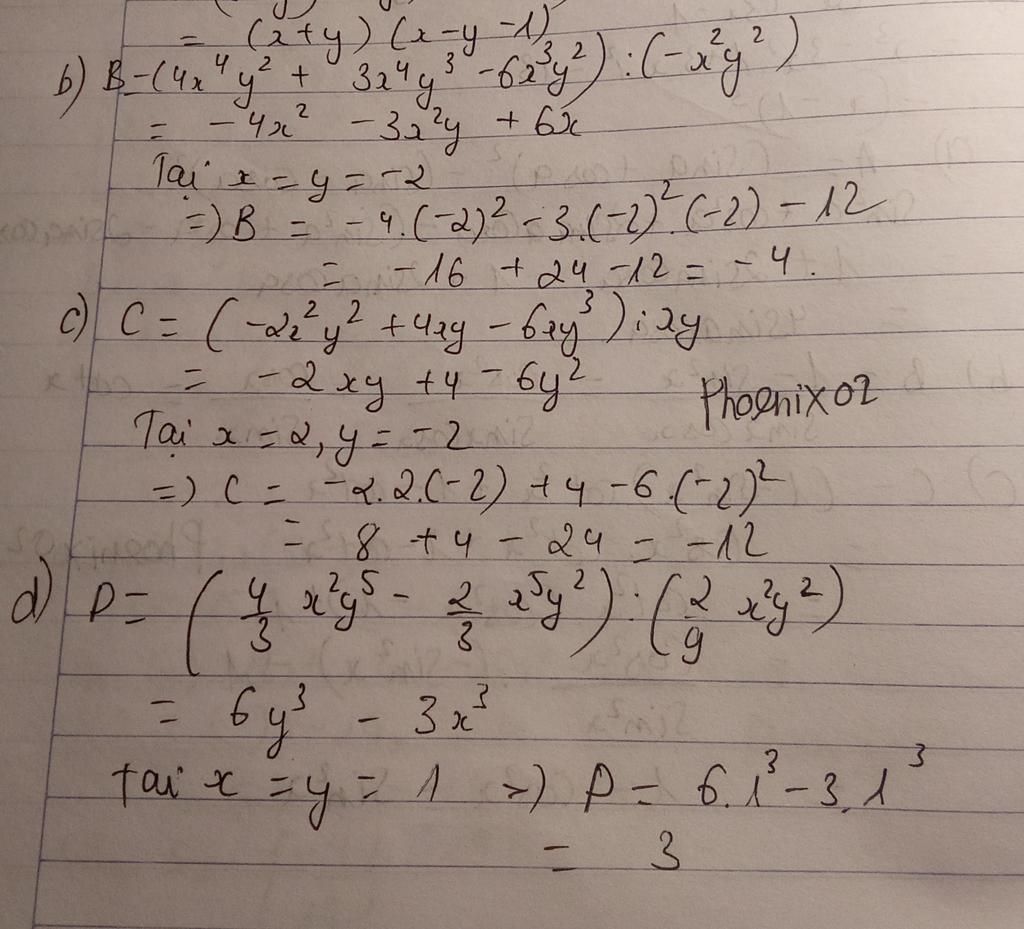 = (x+y) (x-y-1)
b) B = (4x⁴y² + 3x⁴y³ - 6x³y²) : (-x²y²)
= -4x² - 3x²y + 6x
Tại x = y = -2
=) B = -4.(-2)² - 3.(-2)².(-2) - 12
= -16 + 24 - 12 = -4.
c) C = (-2x²y² + 4xy - 6xy³) : xy
= -2xy + 4 - 6y²
Phoenix02
Tại x = 2, y = -2
=) C = -2.2.(-2) + 4 - 6.(-2)²
= 8 + 4 - 24 = -12
d) D = (4/3 x²y⁵ - 2/3 x⁵y²) : (2/9 x²y²)
= 6y³ - 3x³
tại x = y = 1 =) D = 6.1³ - 3.1³
= 3